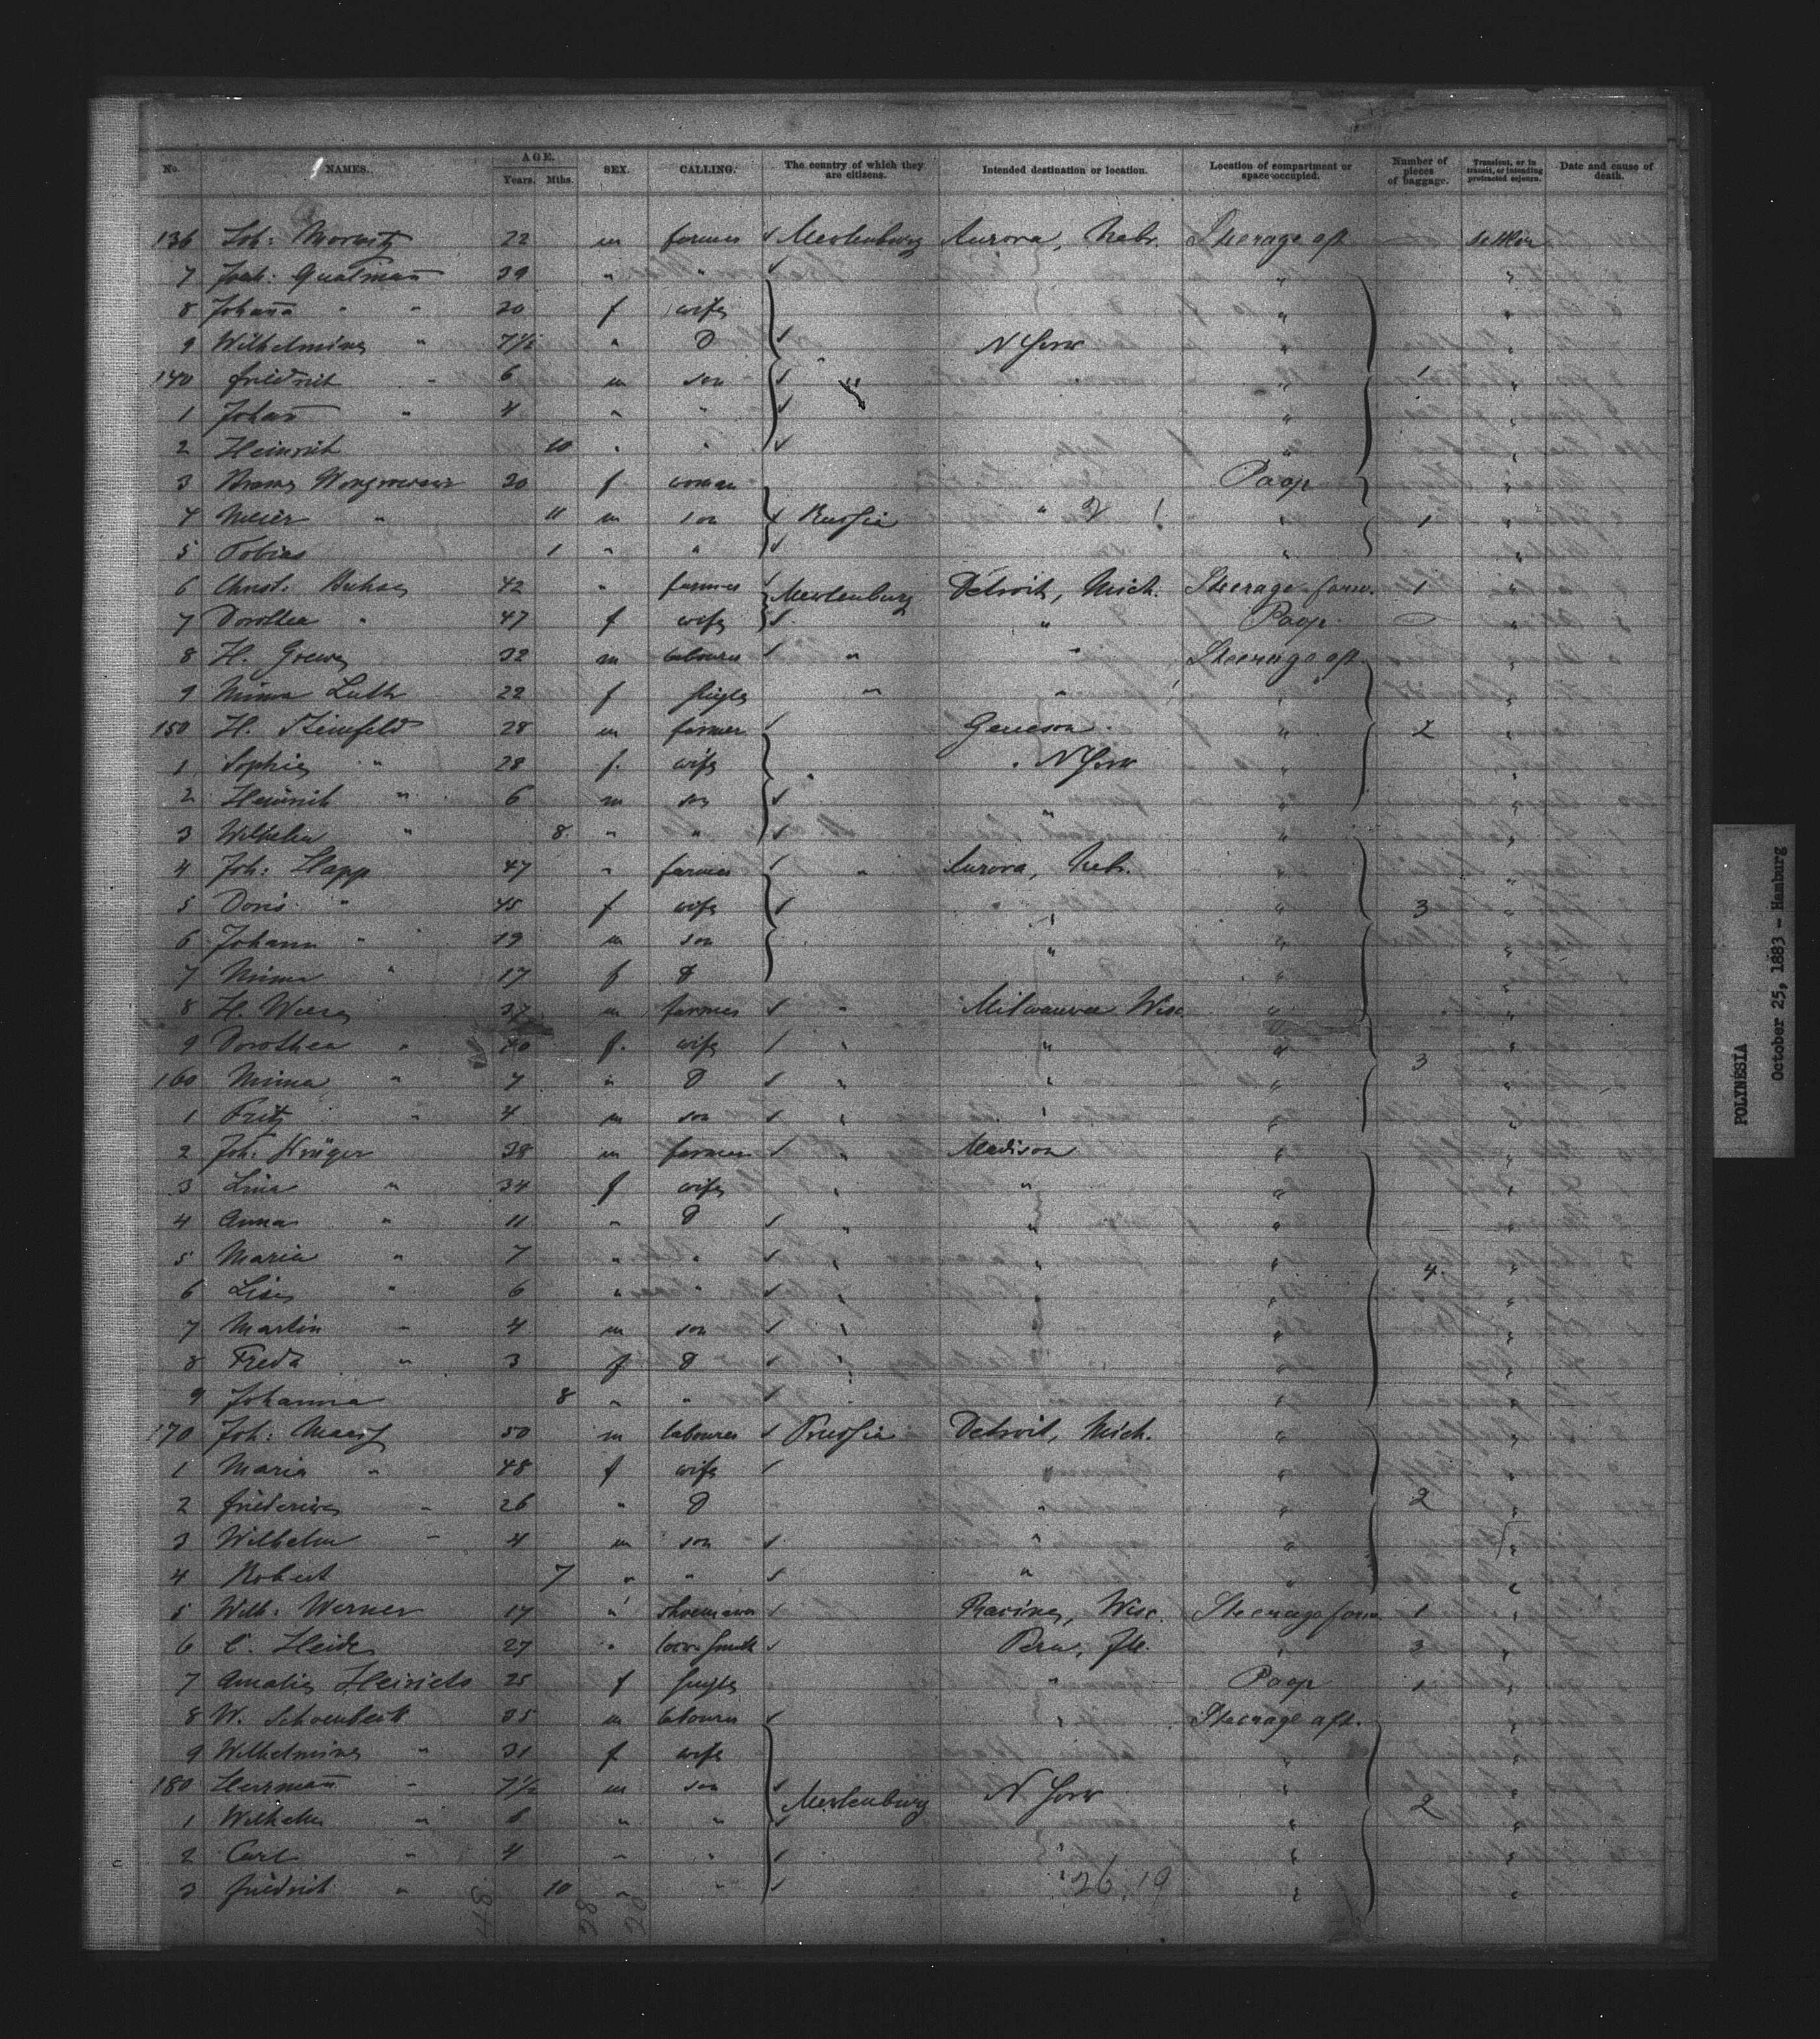 No. NAMES. AGE. Years. Mths. SEX. CALLING. The country of which they are citizens. Intended destination or location. Location of compartment or space occupied. Number of pieces of baggage. Transient, or in transit, or intending protracted sojourn. Date and cause of death.
136 Joh: 22 m farmer Meklenburg Aurora, Nebr. Steerage aft settler
7 Joh: 39 " "
8 Johanna " " 20 f wife "
9 Wilhelmine " 7½ " D N York "
140 Friedrich " 6 m son " 1 "
1 Johann " 4 " " "
2 Heinrich 10 " " "
3 30 f woman Poop "
4 Meier " 11 m son Russia " 1 "
5 Tobias 1 " " " "
6 Christ. 42 " farmer Meklenburg Detroit, Mich. Steerage forw. 1 "
7 Dorothea " 47 f wife " Poop "
8 H. Grewe 32 m labourer " " Steerage aft "
9 Minna Luth 22 f single " " " "
150 H. Steinfeld 28 m farmer Geneson " 2 "
1 Sophie " 28 f. wife " N York " "
2 Heinrich " 6 m son " " "
3 Wilhelm " 8 " " " "
4 Joh: Happ 47 " farmer " Aurora, Nebr. " "
5 Doris " 45 f wife " " 3 "
6 Johann " 19 m son " " "
7 Minna " 17 f D " "
8 H. Wiese 37 m farmer " Milwaukee Wisc " "
9 Dorothea " 40 f. wife " " " 3 "
160 Minna " 7 " D " " " "
1 Fritz " 4 m son " " " "
2 Joh: Krüger 38 m farmer " Madison " "
3 Lina " 34 f wife " " " "
4 Anna " 11 " D " " " "
5 Maria " 7 " " " " " 4 "
6 Lise " 6 " " " " " "
7 Martin " 4 m son " " " "
8 Freda " 3 f D " " "
9 Johanna 8 " " " "
170 Joh: Maass 50 m labourer Prussia Detroit, Mich. " "
1 Maria " 48 f wife " " "
2 Friederike " 26 " D " " 2 "
3 Wilhelm " 4 m son " " "
4 Robert 7 " " " " "
5 Wilh: Werner 17 " shoemaker Racine, Wisc. Steerage forw. 1 "
6 C. Heide 27 " Peru, Ill. " 3 "
7 Amalie Heinrichs 25 f single " Poop 1 "
8 W. Schoenbeck 35 m labourer " Steerage aft. "
9 Wilhelmine " 31 f wife " "
180 Herrmann " 7½ m son Meklenburg N York " 2 "
1 Wilhelm " 6 " " " "
2 Carl " 4 " " " " "
3 Friedrich " 10 " " " " "
26.19
48 28 20
POLYNESIA
October 25, 1883 - Hamburg